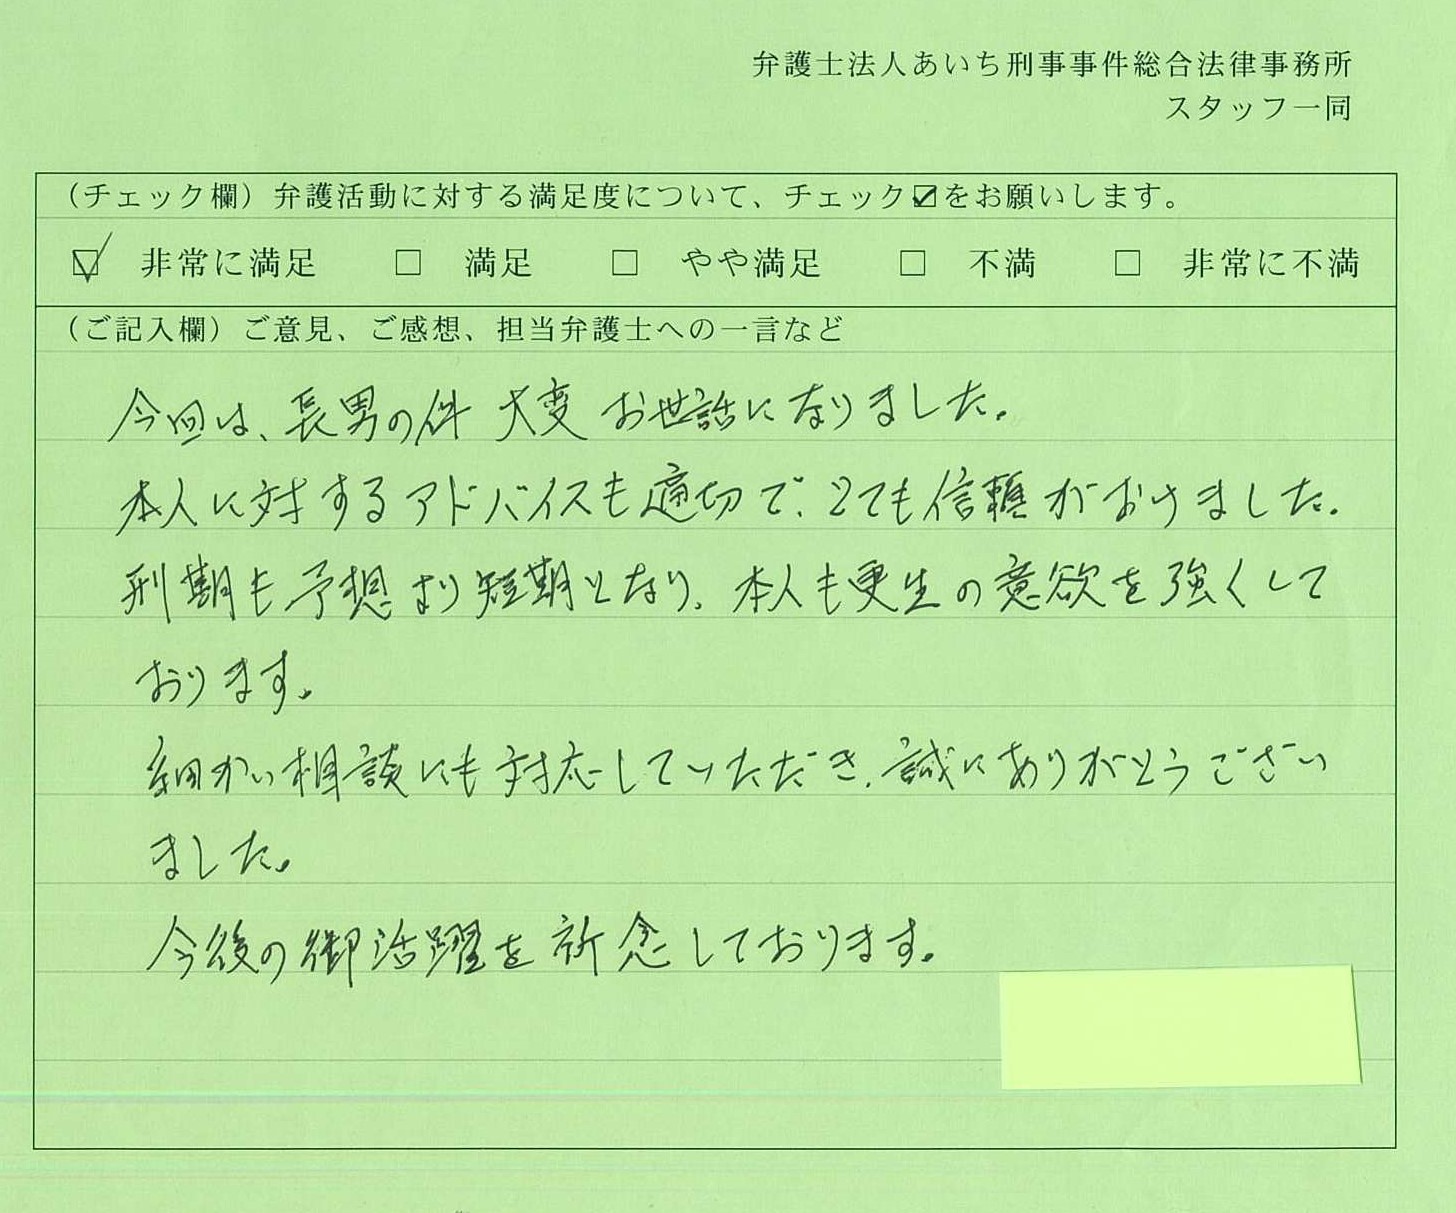 弁護士法人あいち刑事事件総合法律事務所
スタッフ一同
（チェック欄）弁護活動に対する満足度について、チェック☑をお願いします。
☑ 非常に満足 □ 満足 □ やや満足 □ 不満 □ 非常に不満
（ご記入欄）ご意見、ご感想、担当弁護士への一言など
今回は、長男の件 大変 お世話になりました。
本人に対するアドバイスも適切で、とても信頼がおけました。
刑期も予想より短期となり、本人も更生の意欲を強くして
おります。
細かい相談にも対応していただき、誠にありがとうござい
ました。
今後の御活躍を祈念しております。